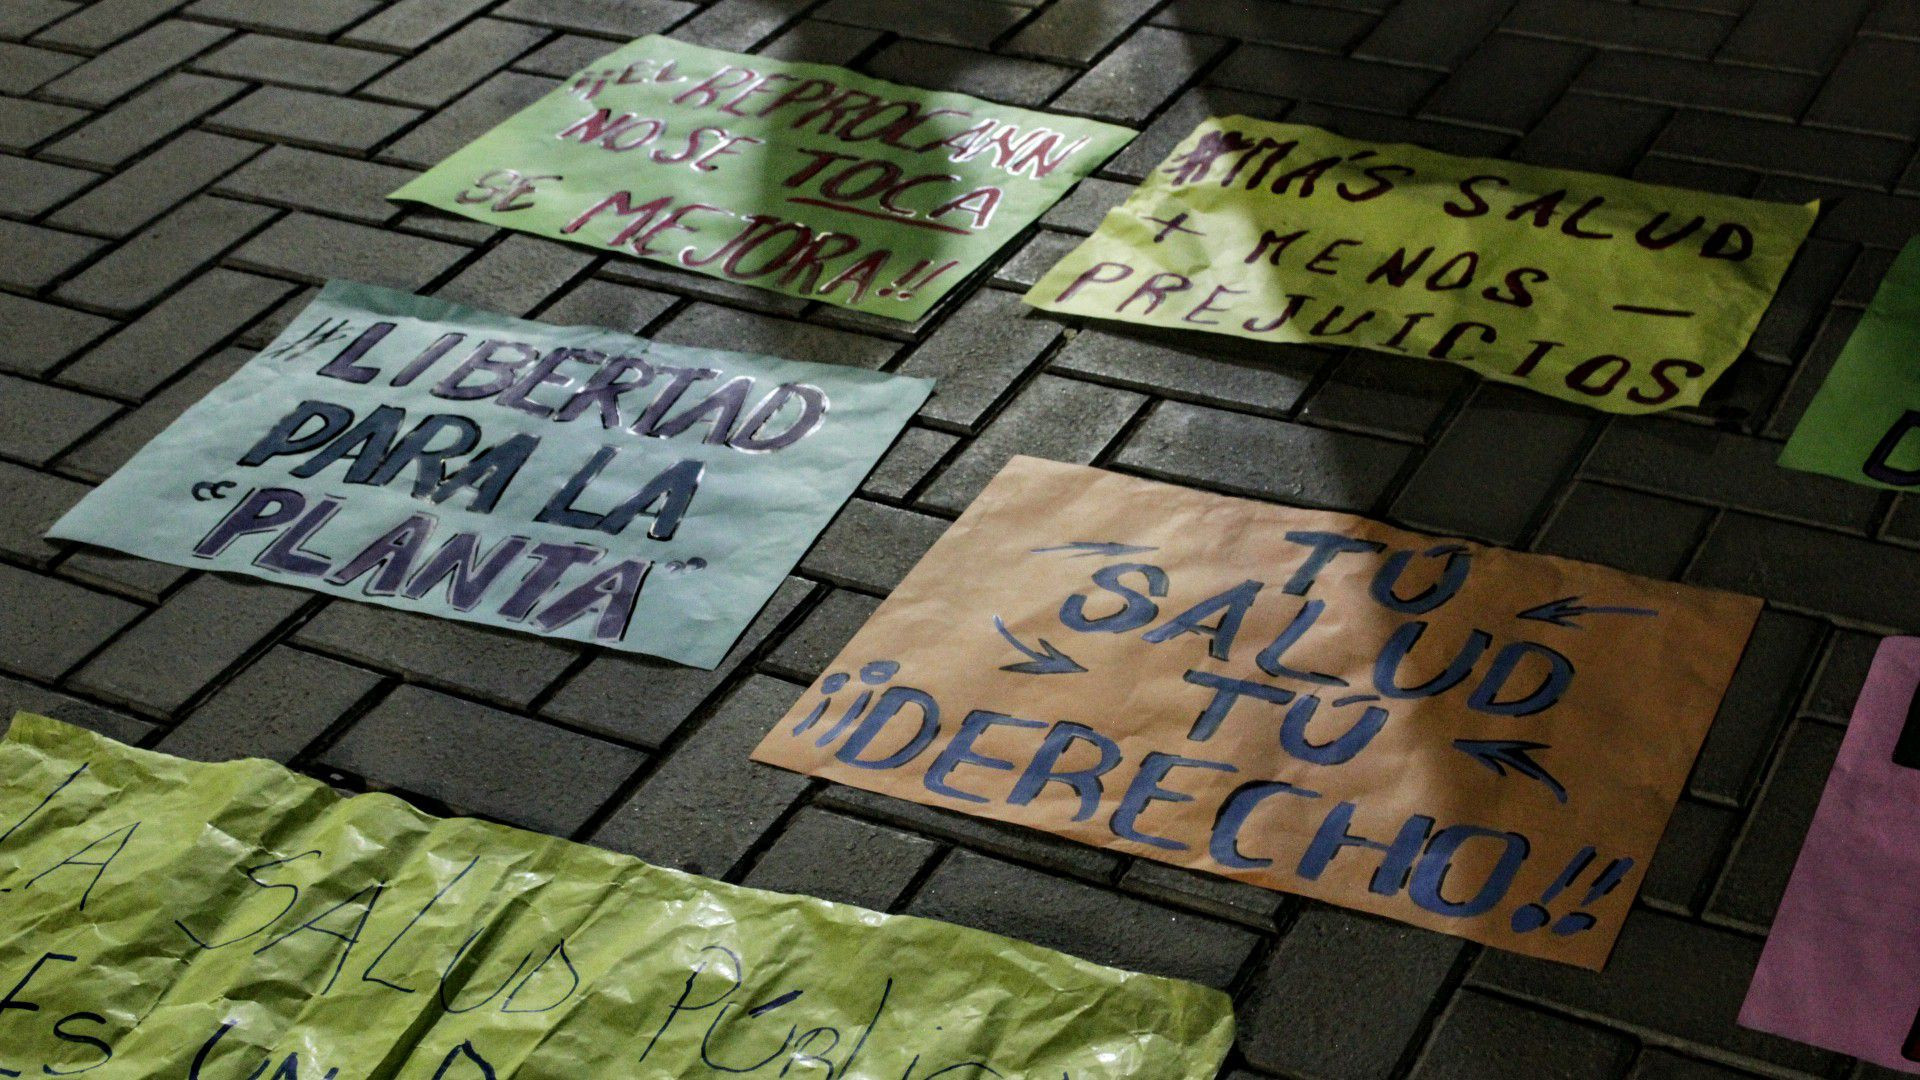 ¡¡EL REPROCANN
NO SE TOCA
SE MEJORA!!
#MÁS SALUD
+ MENOS -
PREJUICIOS
#LIBERTAD
PARA LA
"PLANTA"
TÚ
SALUD
TÚ
¡¡DERECHO!!
LA SALUD PÚBLIC
ES UN D
D